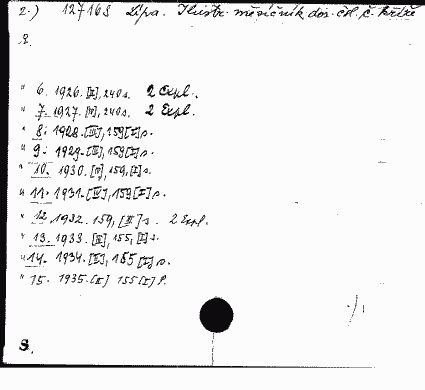 2.) 127168 Lípa. Ilustr. měsíčník dor. čsl. č. kříže
R.
" 6. 1926. [I], 240 s. 2 Expl.
" 7. 1927. [IV], 240 s. 2 Expl.
" 8. 1928. [III], 159 [I] s.
" 9. 1929. [II], 159 [I] s.
" 10. 1930. [IV], 159, [I] s.
" 11. 1931. [IV], 159 [I] s.
" 12. 1932. 159, [II] s. 2 Expl.
" 13. 1933. [II], 155, [I] s.
" 14. 1934. [II], 155 [I] s.
" 15. 1935. [II] 155 [I] s.
S.